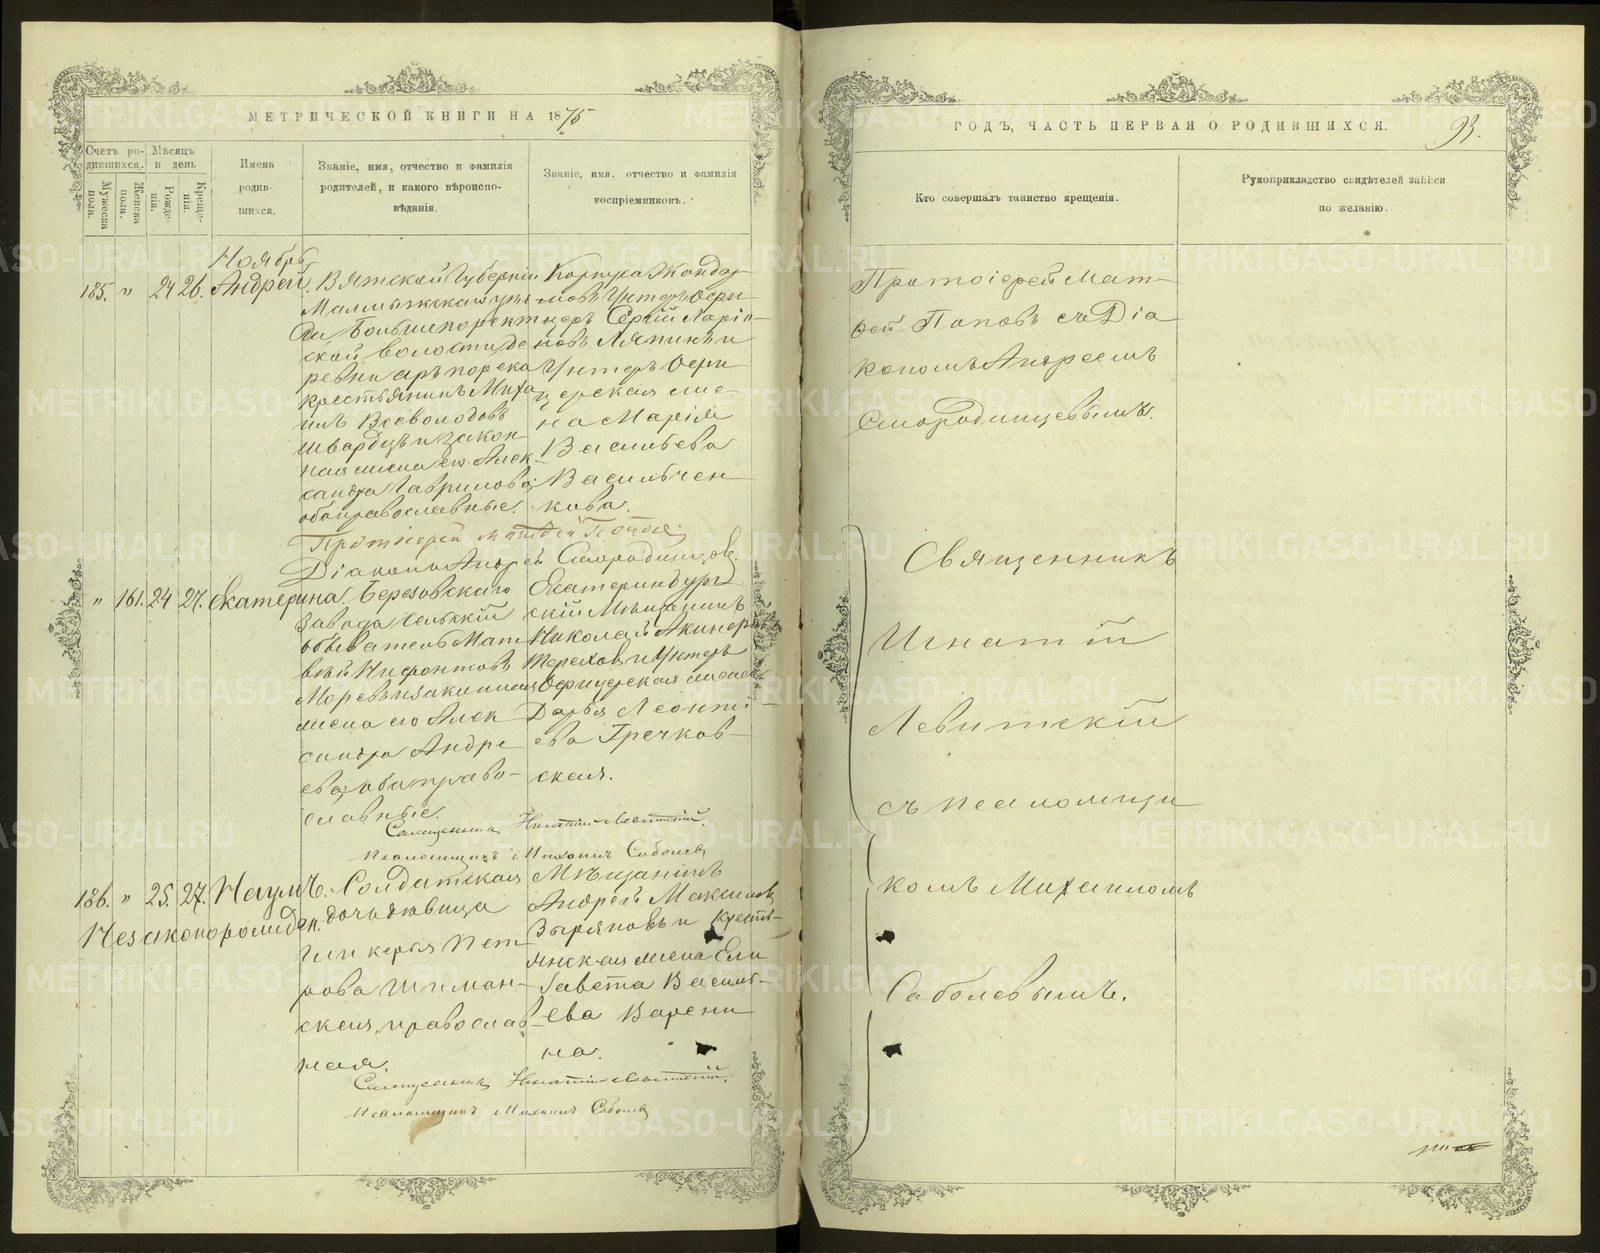 МЕТРИЧЕСКОЙ КНИГИ НА 1875
Счетъ родившихся.
Мѣсяцъ и день
Имена родившихся.
Званіе, имя, отчество и фамилія родителей, и какого вѣроисповѣданія.
Званіе, имя, отчество и фамилія воспріемниковъ.
Мужеска пола.
Женска пола.
Рожденія.
Крещенія.
Ноябрь
185. " 24 26. Андрей.
Вятской Губерніи
Малмыжскаго уѣз
да Больше
ской волости де
ревни
крестьянинъ Миха
илъ Всеволодовъ
Швардъ и закон
ная жена его Алек
сандра Гаврилова
оба православные.
Корпуса Жандар
мовъ Унтеръ Офи
церъ Сергій Ларіо
новъ Ляпинъ и
Унтеръ Офи
церская же
на Марія
Васильева
Васильчен
кова.
Протоіерей Матфей Поповъ
Діаконъ Андрей Смородинцевъ
" 161. 24 27. Екатерина.
Березовскаго
завода сельскій
обыватель Мат
вѣй Нифонтовъ
и законная
жена его Алек
сандра Андре
ева, оба право
славные.
Екатеринбург
скій Мѣщанинъ
Николай Акинфіевъ
Тереховъ и Унтеръ
Офицерская жена
Дарья Леонті
ева Гречков
ская.
Священникъ Игнатій Левитскій.
Псаломщикъ Михаилъ Соболевъ
186. " 25. 27. Наумъ.
Незаконорожден.
Солдатская
дочь дѣвица
Гликерія Пет
рова Шиман
ская, православ
ная.
Мѣщанинъ
Андрей Максимовъ
Зыряновъ и крестья
янская жена Ели
завета Василь
ева Варени
на.
Священникъ Игнатій Левитскій.
Псаломщикъ Михаилъ Соболевъ
ГОДЪ, ЧАСТЬ ПЕРВАЯ О РОДИВШИХСЯ.
93.
Кто совершалъ таинство крещенія.
Рукоприкладство свидѣтелей записи по желанію.
Протоіерей Мат
фей Поповъ съ Діа
кономъ Андреемъ
Смородинцевымъ.
Священникъ
Игнатій
Левитскій
съ псаломщи
комъ Михаиломъ
Соболевымъ.
METRIKI.GASO-URAL.RU